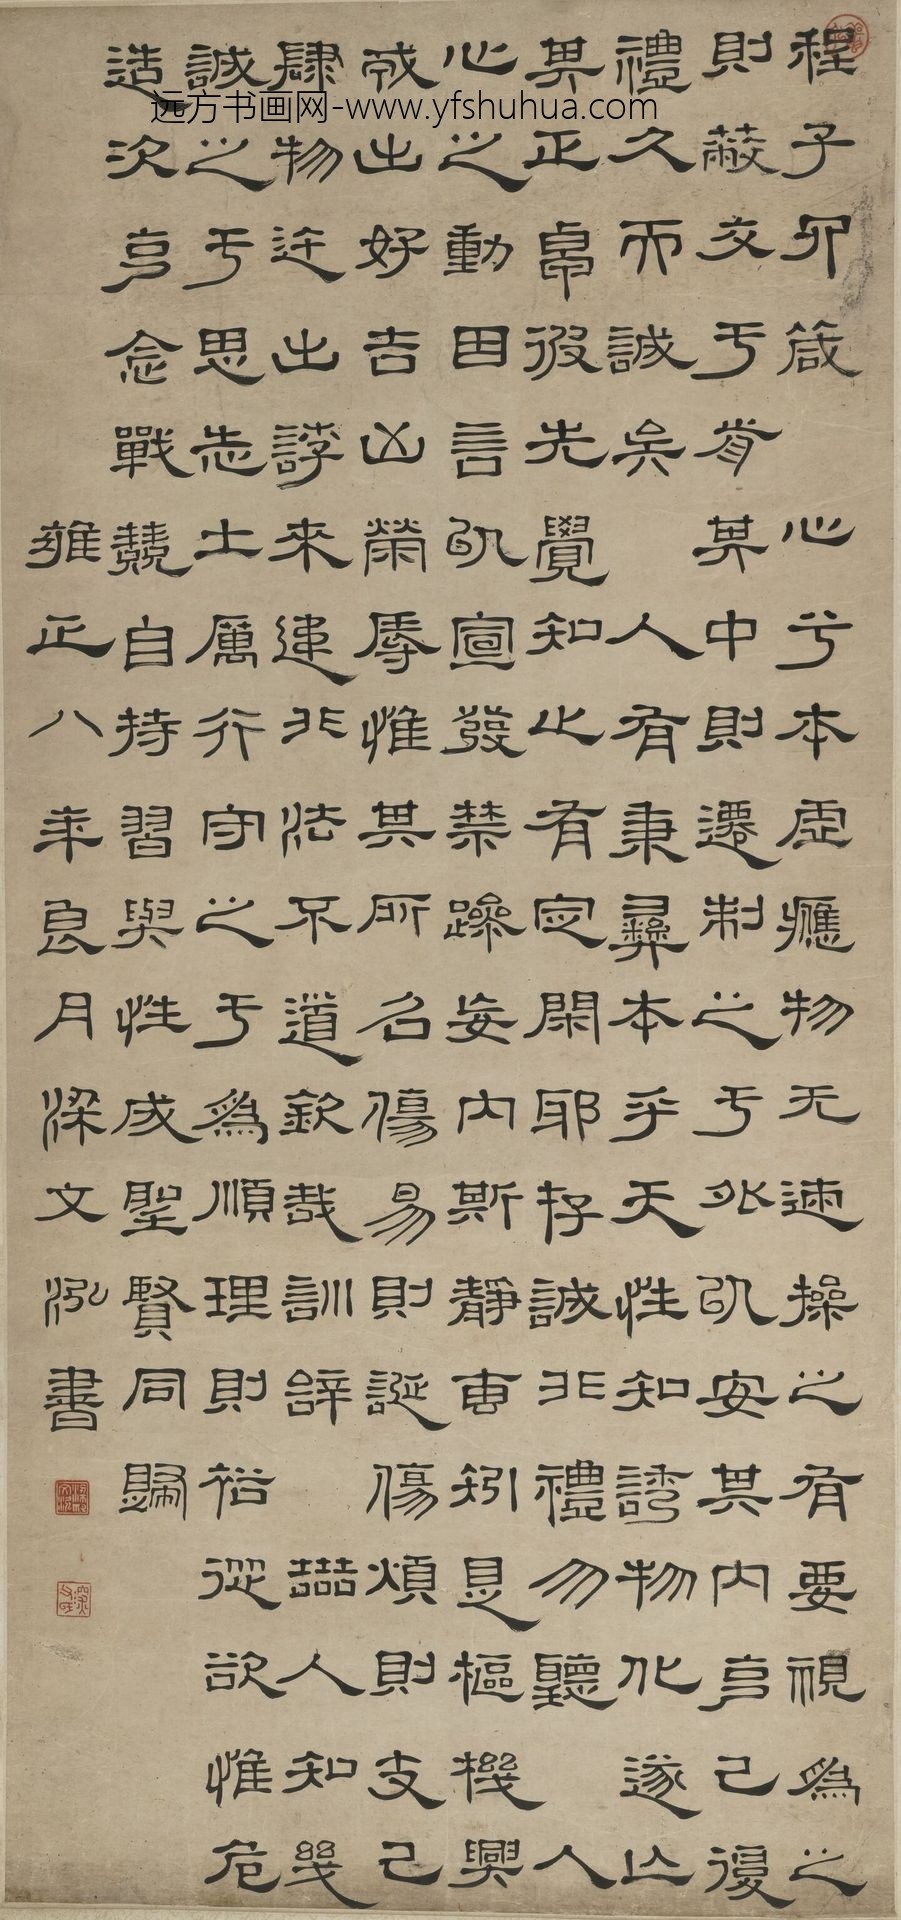 远方书画网-www.yfshuhua.com
程子四箴 心兮本虛應物无迹操之有要視爲之
則蔽交于前其中則遷制之于外以安其內克己復
禮久而誠矣 人有秉彝本乎天性知誘物化遂亡
其正卓彼先覺知止有定閑耶存誠非禮勿聽 人
心之動因言以宣發禁躁妄內斯靜專矧是樞機興
戎出好吉凶榮辱惟其所召傷易則誕傷煩則支己
肆物迕出誖來違非法不道欽哉訓辭 喆人知幾
誠之于思志士厲行守之于爲順理則裕從欲惟危
造次克念戰兢自持習與性成聖賢同歸
雍正八年良月梁文泓書